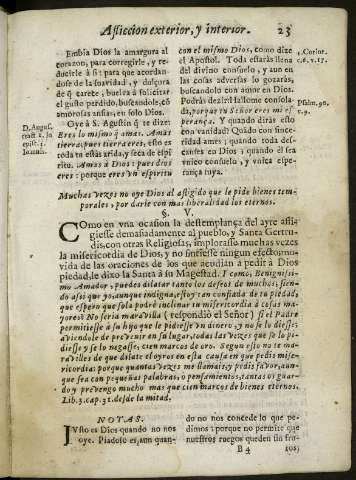 Afliccion exterior, y interior. 23
Embia Dios la amargura al
corazon, para corregirle, y re-
ducirle à sí: para que acordan-
dose de la suavidad, y dulçura
de q̃ carete, buelva à solicitar
el gusto perdido, buscandole, cõ
amorosas ansias, en solo Dios.
Oye à S. Agustin q̃ te dize:
Eres lo mismo q̃ amas. Amas
tierra, pues tierra eres; esto es
toda tu estàs arida, y seca de espi-
ritu. Amas à Dios: pues dios
eres: porque eres vn espiritu
D. Augus.
tract. 2. in
epist. 1.
Ioann.
con el mismo Dios, como dize
el Apostol. Toda estaràs llena
del divino consuelo, y aun en
las cosas adversas lo gozaràs,
buscandolo con amor en Dios.
Podràs dezir al sallome consola-
da, porque tu Señor eres mi es-
perança. Y quando diràs esto
con vanidad? Quãdo con since-
ridad ames; quando toda des-
cansa en Dios; quando el sea
vnico consuelo, y vnica espe-
rança tuya.
1. Corint.
c. 6. v. 17.
Psalm. 90.
v. 9.
Muchas vezes no oye Dios al afligido que le pide bienes tem-
porales, por darle con mas liberalidad los eternos.
§. V.
Como en vna ocasion la destemplança del ayre afli-
giesse demasiadamente al pueblo, y Santa Gertru-
dis, con otras Religiosas, implorasse muchas vezes
la misericordia de Dios, y no sintiesse ningun efecto mo-
vida de las oraciones de los que acudian à pedir à Dios
piedad, le dixo la Santa à su Magestad. Y como, Benignissi-
mo Amador, puedes dilatar tanto los deseos de muchos; sien-
do assi que yo, aunque indigna, estoy tan confiada de tu piedad,
que espero que sola podrè inclinar tu misericordia à cosas ma-
yores? No seria maravilla (respondiò el Señor) si el Padre
permitiesse à su hijo que le pidiesse vn dinero, y no se lo diesse;
aviendole de prevenir en su lugar, todas las vezes que se lo pi-
diesse y se lo negasse, cien marcos de oro. Segun esso no te ma-
ravilles de que dilate el oyros en esta causa en que pedis mise-
ricordia: porque quantas vezes me llamais; y pedis favor, aun-
que sea con pequeñas palabras, ò pensamientos, tantas os guar-
do y prevengo mucho mas que cien marcos de bienes eternos.
Lib. 3. cap. 31. desde la mitad.
NOTAS.
Iusto es Dios quando no nos
oye. Piadoso es, aun quan-
do no nos concede lo que pe-
dimos: porque no permite que
nuestros ruegos queden sin fru-
B 4
tos;